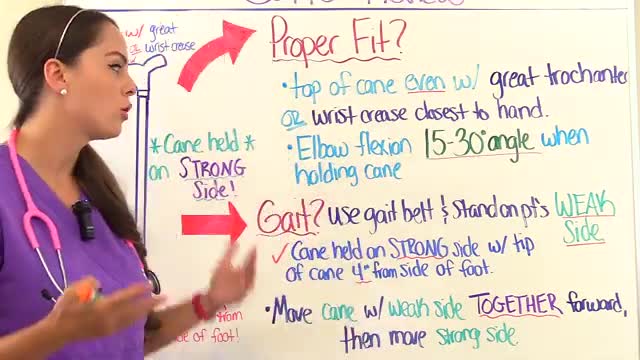 w/ great
OR wrist crease
*Cane held*
on STRONG
Side!
from
of foot!
Proper Fit?
• top of cane even w/ great trochanter
OR wrist crease closest to hand.
• Elbow flexion 15-30° angle when
holding cane
Gait? use gait belt & stand on pt's WEAK
Side
✓ Cane held on STRONG side w/ tip
of cane 4" from side of foot.
• Move cane w/ weak side TOGETHER forward,
then move strong side.